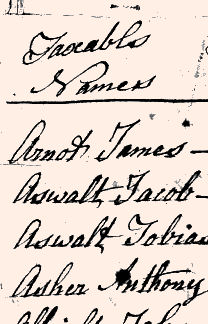 Taxable
Names
Arnot James -
Aswalt Jacob -
Aswalt Tobias
Asher Anthony